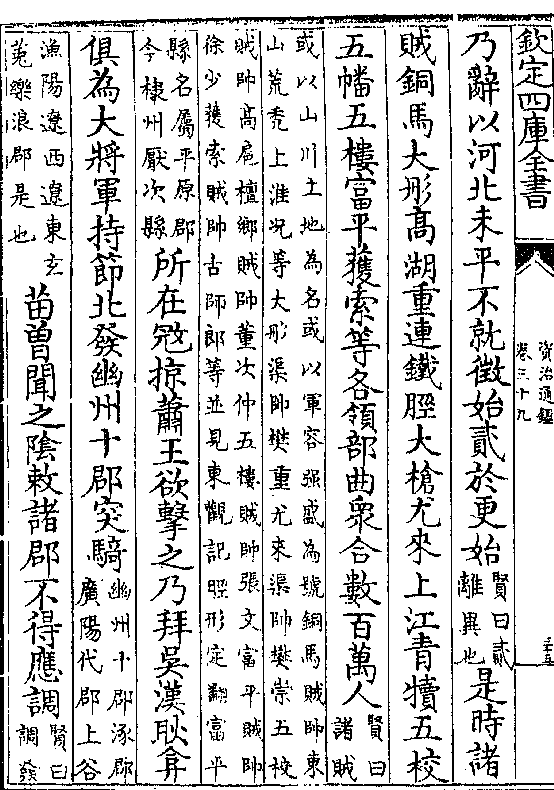 欽定四庫全書
資治通鑑
卷三十九
乃辭以河北未平不就徵始貳於更始
賢曰貳
離異也
是時諸
賊銅馬大彤高湖重連鐵脛大槍尤來上江青犢五校
五幡五樓富平獲索等各領部曲衆合數百萬人
賢曰
諸賊
或以山川土地為名或以軍容强盛為號銅馬賊帥東
山荒秃上淮况等大彤渠帥樊重尤來渠帥樊崇五校
賊帥高扈檀鄉賊帥董次仲五樓賊帥張文富平賊帥
徐少獲索賊帥古師郎等並見東觀記脛形定翻富平
縣名屬平原郡
今棣州厭次縣
所在冦掠蕭王欲擊之乃拜吳漢耿弇
俱為大將軍持節北發幽州十郡突騎
幽州十郡涿郡
廣陽代郡上谷
漁陽遼西遼東玄
菟樂浪郡是也
苗曾聞之陰敕諸郡不得應調
賢曰
調發